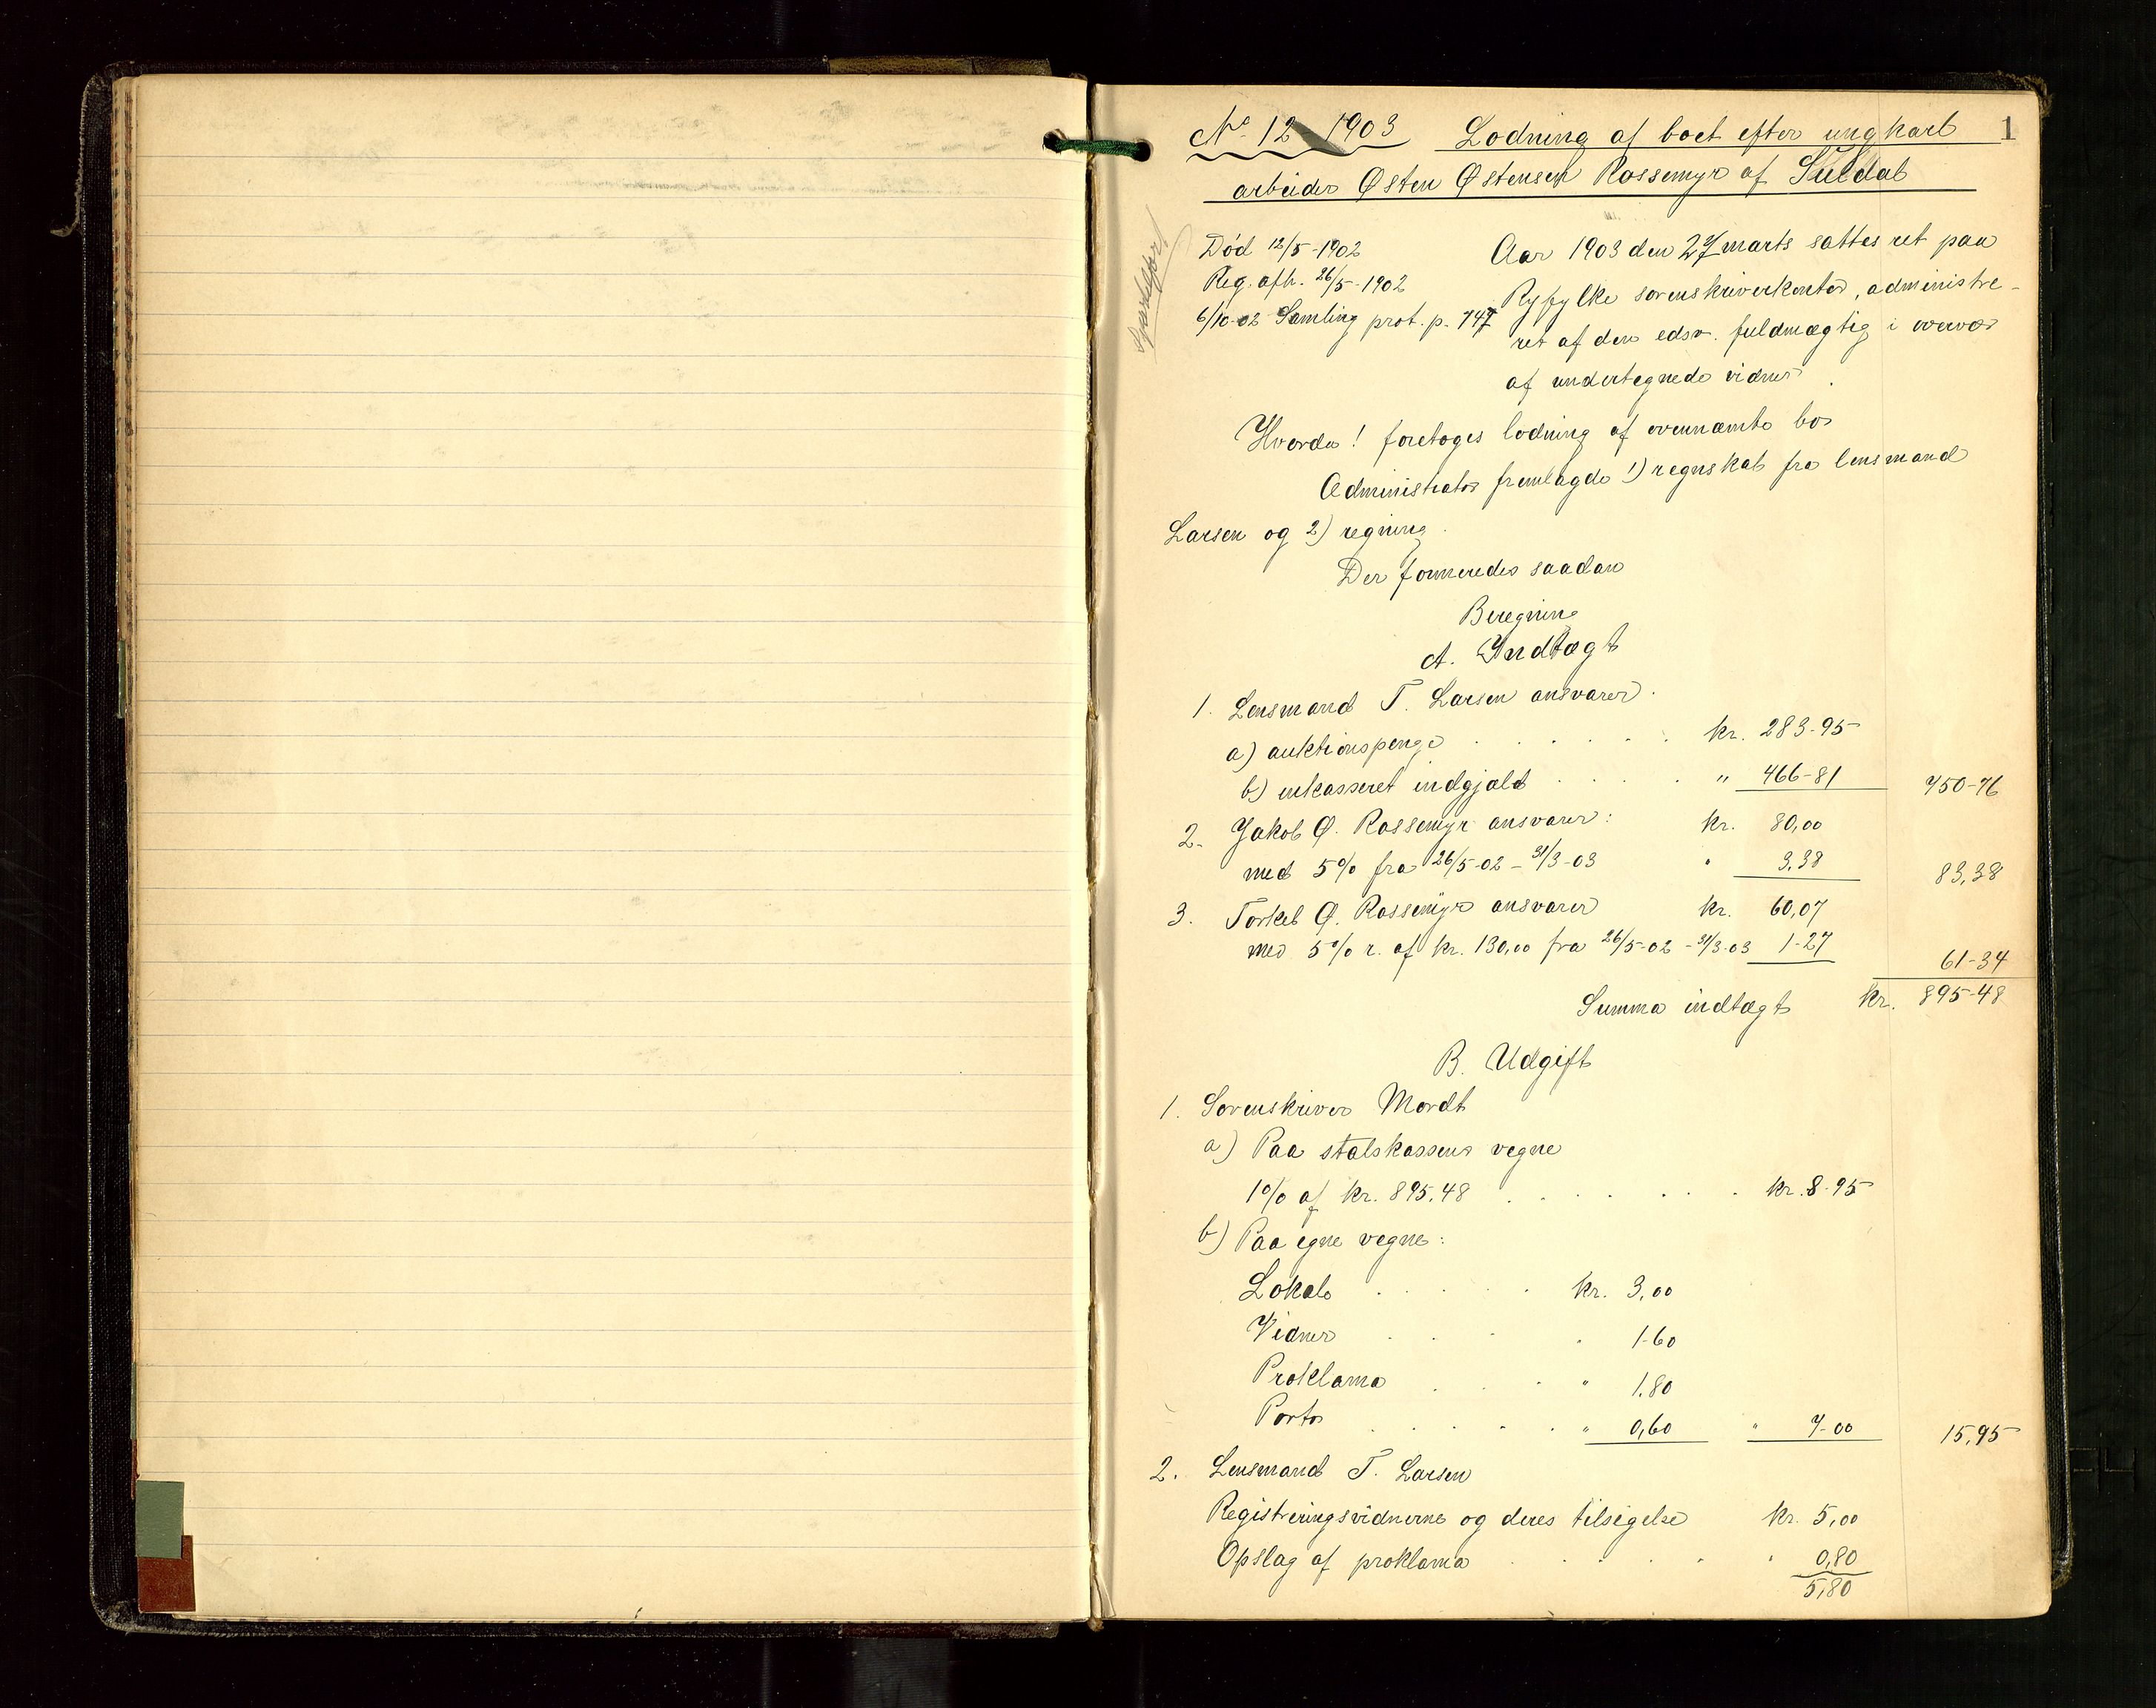 No 12 1903 Lodning af boet efter ungkarl 1
arbeider Østen Østensen Rossemyr af Suldal
Død 12/5-1902
Reg. afh. 26/5-1902
6/10-02 Samling prot. p. 747
Aar 1903 den 27 marts sattes ret paa
Ryfylke sorenskriverkontor, administre-
ret af den edsv. fuldmægtig i overvær
af undertegnede vidner.
Hvorda! foretoges lodning af ovennævnte bo
Administrator fremlagde 1) regnskab fra lensmand
Larsen og 2) regning.
Der formeredes saadan
Beregning
A. Indtægt
1. Lensmand T. Larsen ansvarer.
a) auktionspenge . . . . . . kr. 283-95
b) inkasseret indgjæld . . . . " 466-81 750-76
2. Jakob Ø. Rossemyr ansvarer: kr. 80,00
med 5% fra 26/5-02 - 31/3-03 " 3,38 83,38
3. Torkel Ø. Rossemyr ansvarer kr. 60,07
med 5% r. af kr. 130,00 fra 26/5-02 - 31/3-03 1-27
61-34
Summa indtægt kr. 895-48
B. Udgift
1. Sorenskriver Mordt
a) Paa statskassens vegne
1% af kr. 895,48 . . . . . . kr. 8-95
b) Paa egne vegne:
Lokale . . . . kr. 3,00
Vidner . . . " 1-60
Proklama . . . " 1.80
Porto . . . . . " 0,60 " 7-00 15,95
2. Lensmand T. Larsen
Registreringsvidnerne og deres tilsigelse kr. 5,00
Opslag af proklama . . . . . " 0,80
5,80